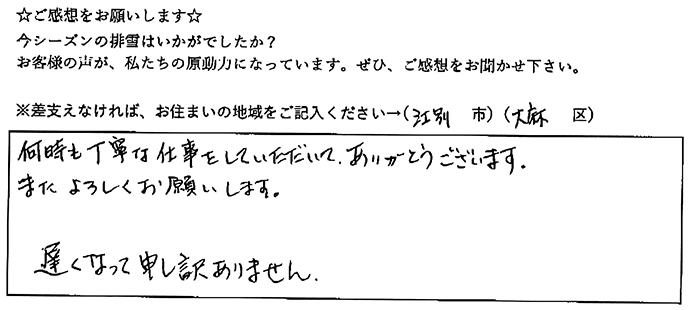 ☆ご感想をお願いします☆
今シーズンの排雪はいかがでしたか？
お客様の声が、私たちの原動力になっています。ぜひ、ご感想をお聞かせ下さい。
※差支えなければ、お住まいの地域をご記入ください→(江別 市) (大麻 区)
何時も丁寧な仕事をしていただいて、ありがとうございます。
またよろしくお願いします。
遅くなって申し訳ありません.